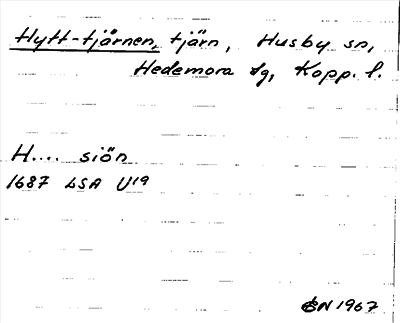 Hytt-tjärnen, tjärn, Husby sn,
Hedemora tg, Kopp. l.
H.... siön
1687 LSA U19
BN 1967